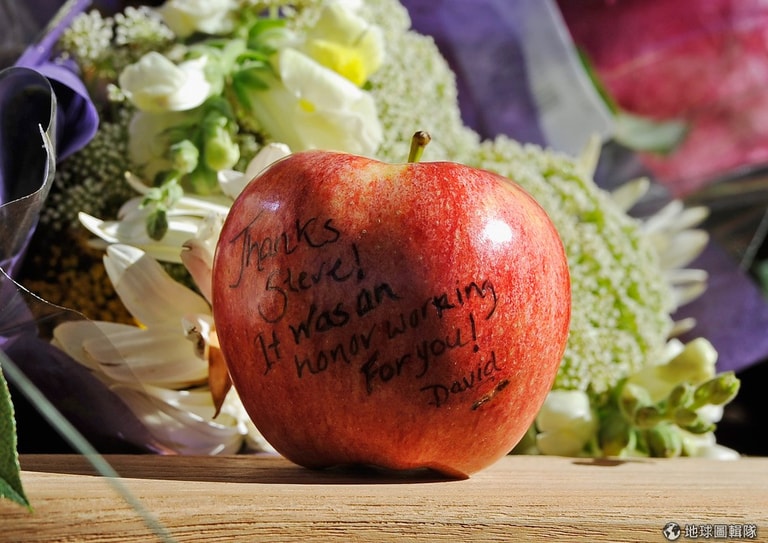 Thanks
Steve!
It was an
honor working
For you!
David
地球圖輯隊